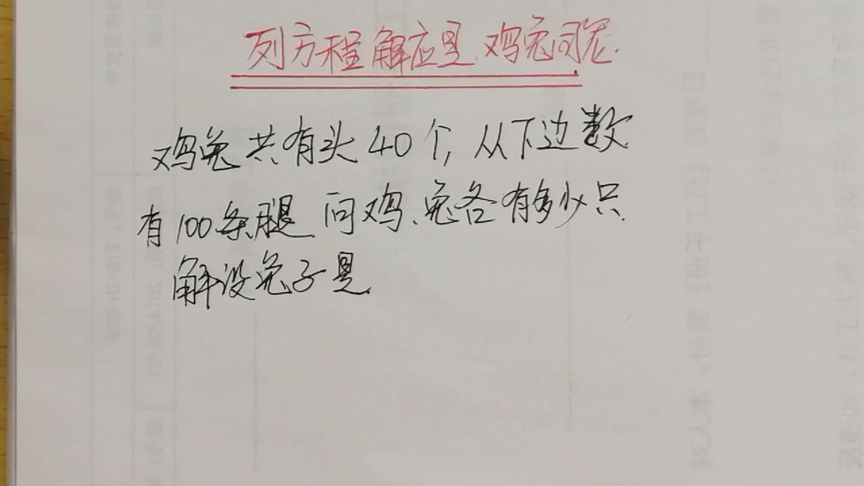 列方程解应是.鸡兔问题.
鸡兔共有头40个,从下边数
有100条腿 问鸡、兔各有多少只.
解设兔子是